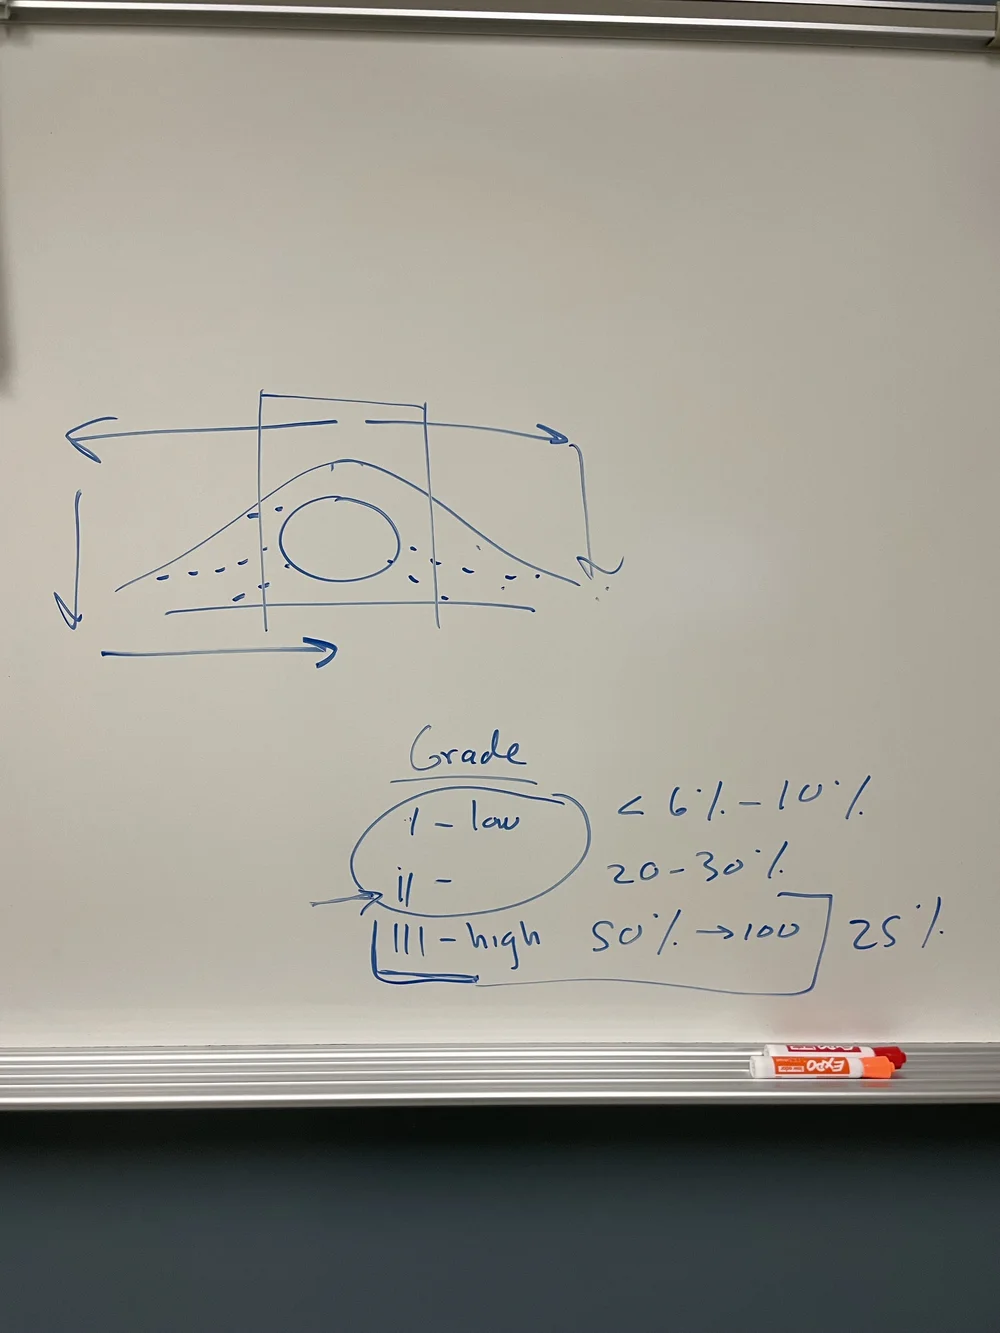 Grade
I - low < 6% - 10%
II - 20 - 30%
III - high 50% → 100 25%
EXPO
EXPO